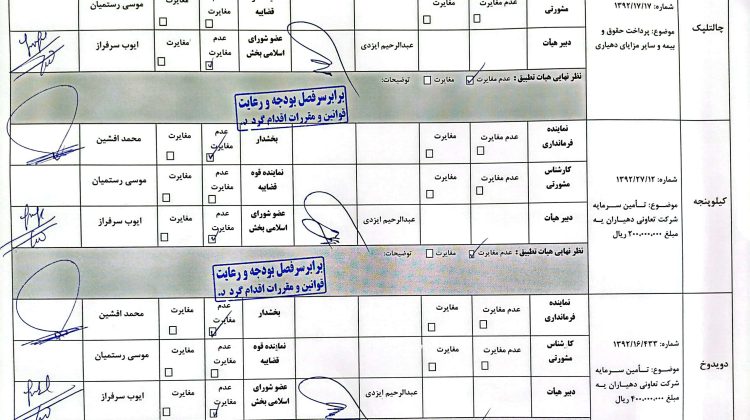 چالتلیک
شماره: ۱۳۹۲/۱۷/۱۷
موضوع: پرداخت حقوق و
بیمه و سایر مزایای دهیاری
مشورتی
عدم مغایرت
مغایرت
قضاییه
مغایرت
موسی رستمیان
دبیر هیأت
عبدالرحیم ایزدی
عضو شورای
اسلامی بخش
عدم
مغایرت
مغایرت
ایوب سرفراز
نظر نهایی هیات تطبیق: عدم مغایرت مغایرت توضیحات:
برابر سرفصل بودجه و رعایت
قوانین و مقررات اقدام گردد
کیلوپنجه
شماره: ۱۳۹۲/۲۷/۱۲
موضوع: تأمین سرمایه
شرکت تعاونی دهیاران به
مبلغ ۲۰۰،۰۰۰،۰۰۰ ریال
نماینده
فرمانداری
عدم مغایرت
مغایرت
بخشدار
عدم
مغایرت
مغایرت
محمد افشین
کارشناس
مشورتی
عدم مغایرت
مغایرت
نماینده قوه
قضاییه
عدم
مغایرت
مغایرت
موسی رستمیان
دبیر هیأت
عبدالرحیم ایزدی
عضو شورای
اسلامی بخش
عدم
مغایرت
مغایرت
ایوب سرفراز
نظر نهایی هیات تطبیق: عدم مغایرت مغایرت توضیحات:
برابر سرفصل بودجه و رعایت
قوانین و مقررات اقدام گردد
دویدوخ
شماره: ۱۳۹۲/۱۶/۴۳۳
موضوع: تأمین سرمایه
شرکت تعاونی دهیاران به
مبلغ ۴۰۰،۰۰۰،۰۰۰ ریال
نماینده
فرمانداری
عدم مغایرت
مغایرت
بخشدار
عدم
مغایرت
مغایرت
محمد افشین
کارشناس
مشورتی
عدم مغایرت
مغایرت
نماینده قوه
قضاییه
عدم
مغایرت
مغایرت
موسی رستمیان
دبیر هیأت
عبدالرحیم ایزدی
عضو شورای
اسلامی بخش
عدم
مغایرت
مغایرت
ایوب سرفراز